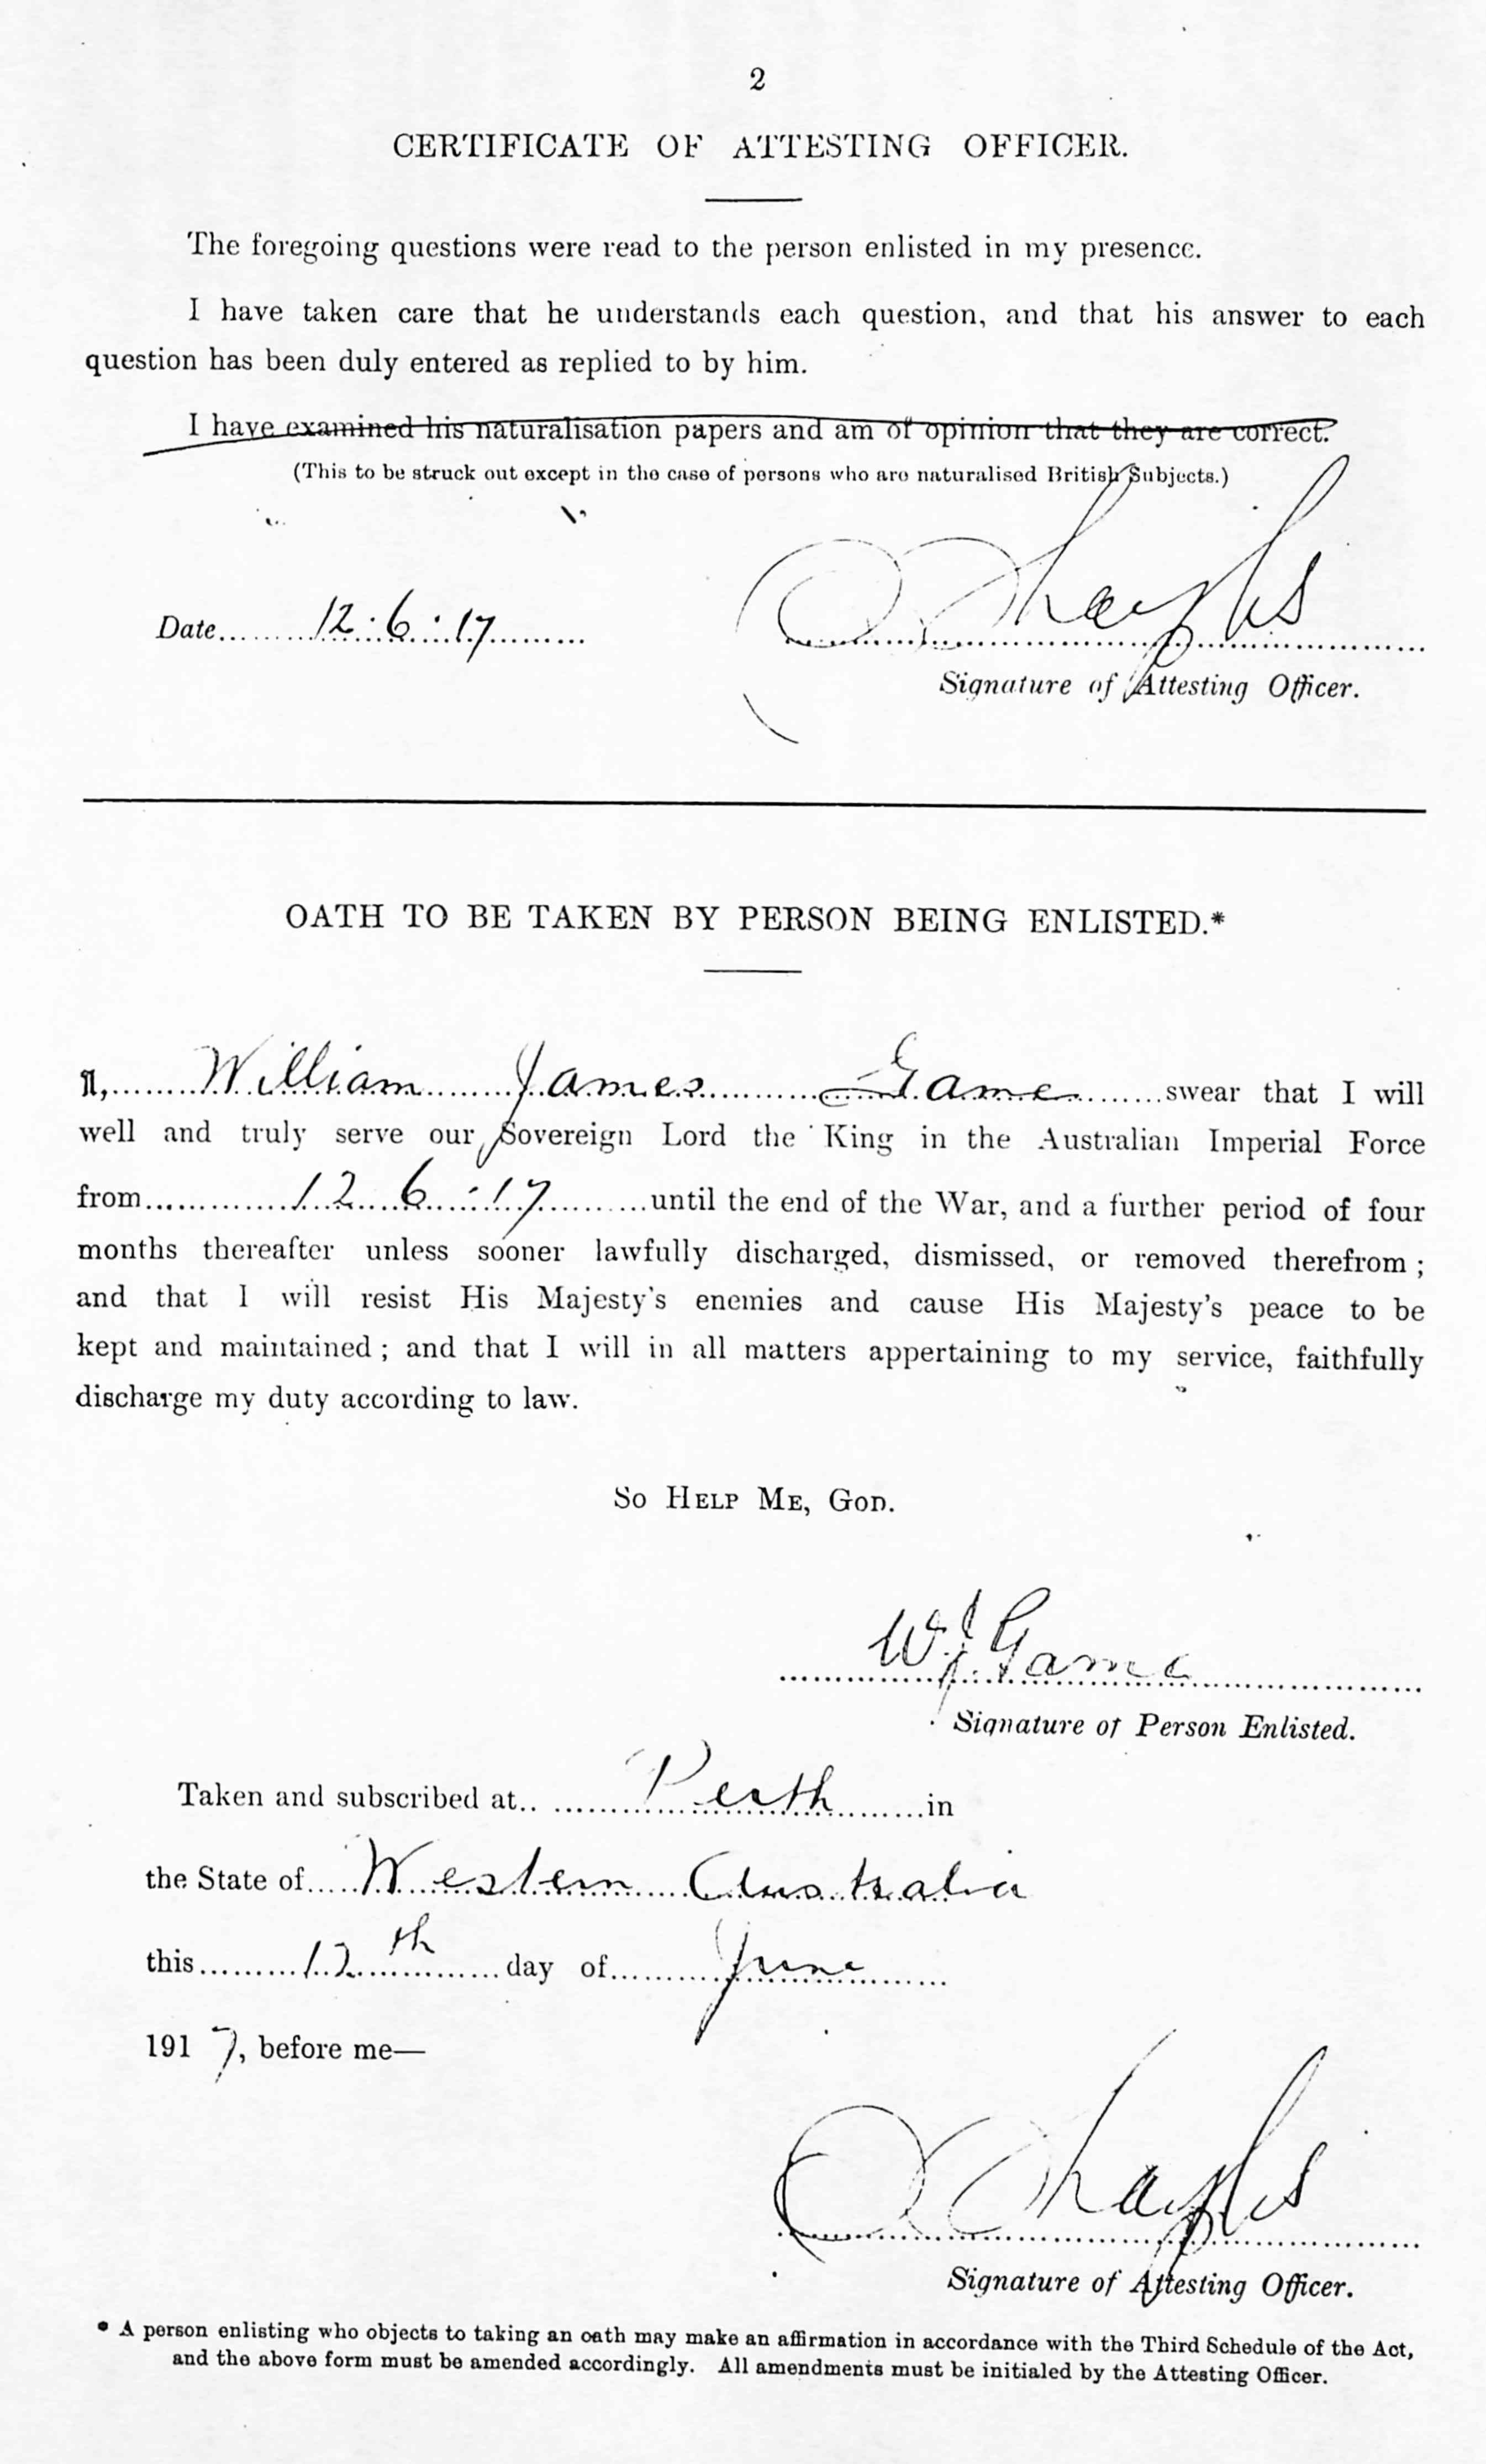 2
CERTIFICATE OF ATTESTING OFFICER.
The foregoing questions were read to the person enlisted in my presence.
I have taken care that he understands each question, and that his answer to each
question has been duly entered as replied to by him.
I have examined his naturalisation papers and am of opinion that they are correct.
(This to be struck out except in the case of persons who are naturalised British Subjects.)
Date 12.6.17
Signature of Attesting Officer.
OATH TO BE TAKEN BY PERSON BEING ENLISTED.*
I, William James Game swear that I will
well and truly serve our Sovereign Lord the King in the Australian Imperial Force
from 12.6.17 until the end of the War, and a further period of four
months thereafter unless sooner lawfully discharged, dismissed, or removed therefrom ;
and that I will resist His Majesty's enemies and cause His Majesty's peace to be
kept and maintained ; and that I will in all matters appertaining to my service, faithfully
discharge my duty according to law.
So Help Me, God.
W. J. Game
Signature of Person Enlisted.
Taken and subscribed at Perth in
the State of Western Australia
this 12th day of June
1917, before me—
Signature of Attesting Officer.
* A person enlisting who objects to taking an oath may make an affirmation in accordance with the Third Schedule of the Act,
and the above form must be amended accordingly. All amendments must be initialed by the Attesting Officer.